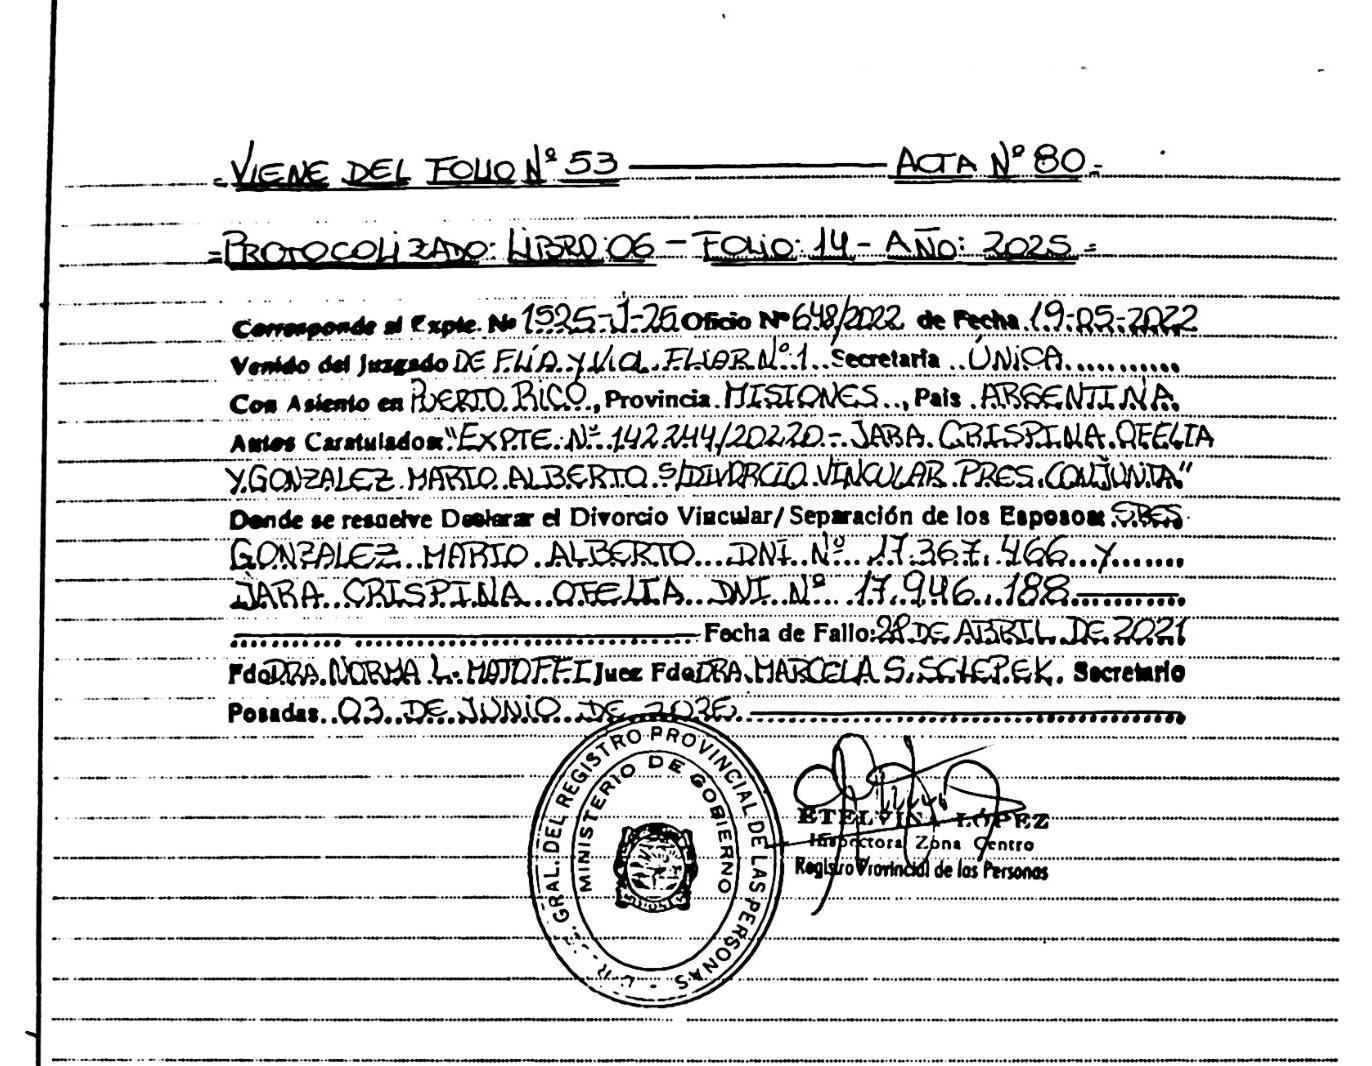 =VIENE DEL FOLIO Nº 53 ——— ACTA Nº 80=
=PROTOCOLIZADO: LIBRO: 06 – FOLIO: 14 – AÑO: 2025=
Corresponde al Expte. Nº 1525-J-25 Oficio Nº 648/2022 de Fecha 19-05-2022
Venido del Juzgado DE FLÍA. Y VIOL. FLIAR Nº 1 Secretaria ÚNICA
Con Asiento en PUERTO RICO, Provincia MISIONES, País ARGENTINA
Autos Caratulados: "EXPTE. Nº 142244/20220 – JARA CRISPINA OFELIA
Y GONZALEZ MARIO ALBERTO S/DIVORCIO VINCULAR PRES. CONJUNTA"
Donde se resuelve Declarar el Divorcio Vincular/Separación de los Esposos: SRES
GONZALEZ MARIO ALBERTO DNI Nº 17.367.466 Y
JARA CRISPINA OFELIA DNI Nº 17.946.188
Fecha de Fallo: 28 DE ABRIL DE 2021
Fdo DRA. NORMA L. Juez Fdo DRA. MARCELA S. Secretario
Posadas. 03 DE JUNIO DE
GRAL. DEL REGISTRO PROVINCIAL DE LAS PERSONAS
MINISTERIO DE GOBIERNO
ETELVINA LÓPEZ
Inspectora Zona Centro
Registro Provincial de las Personas